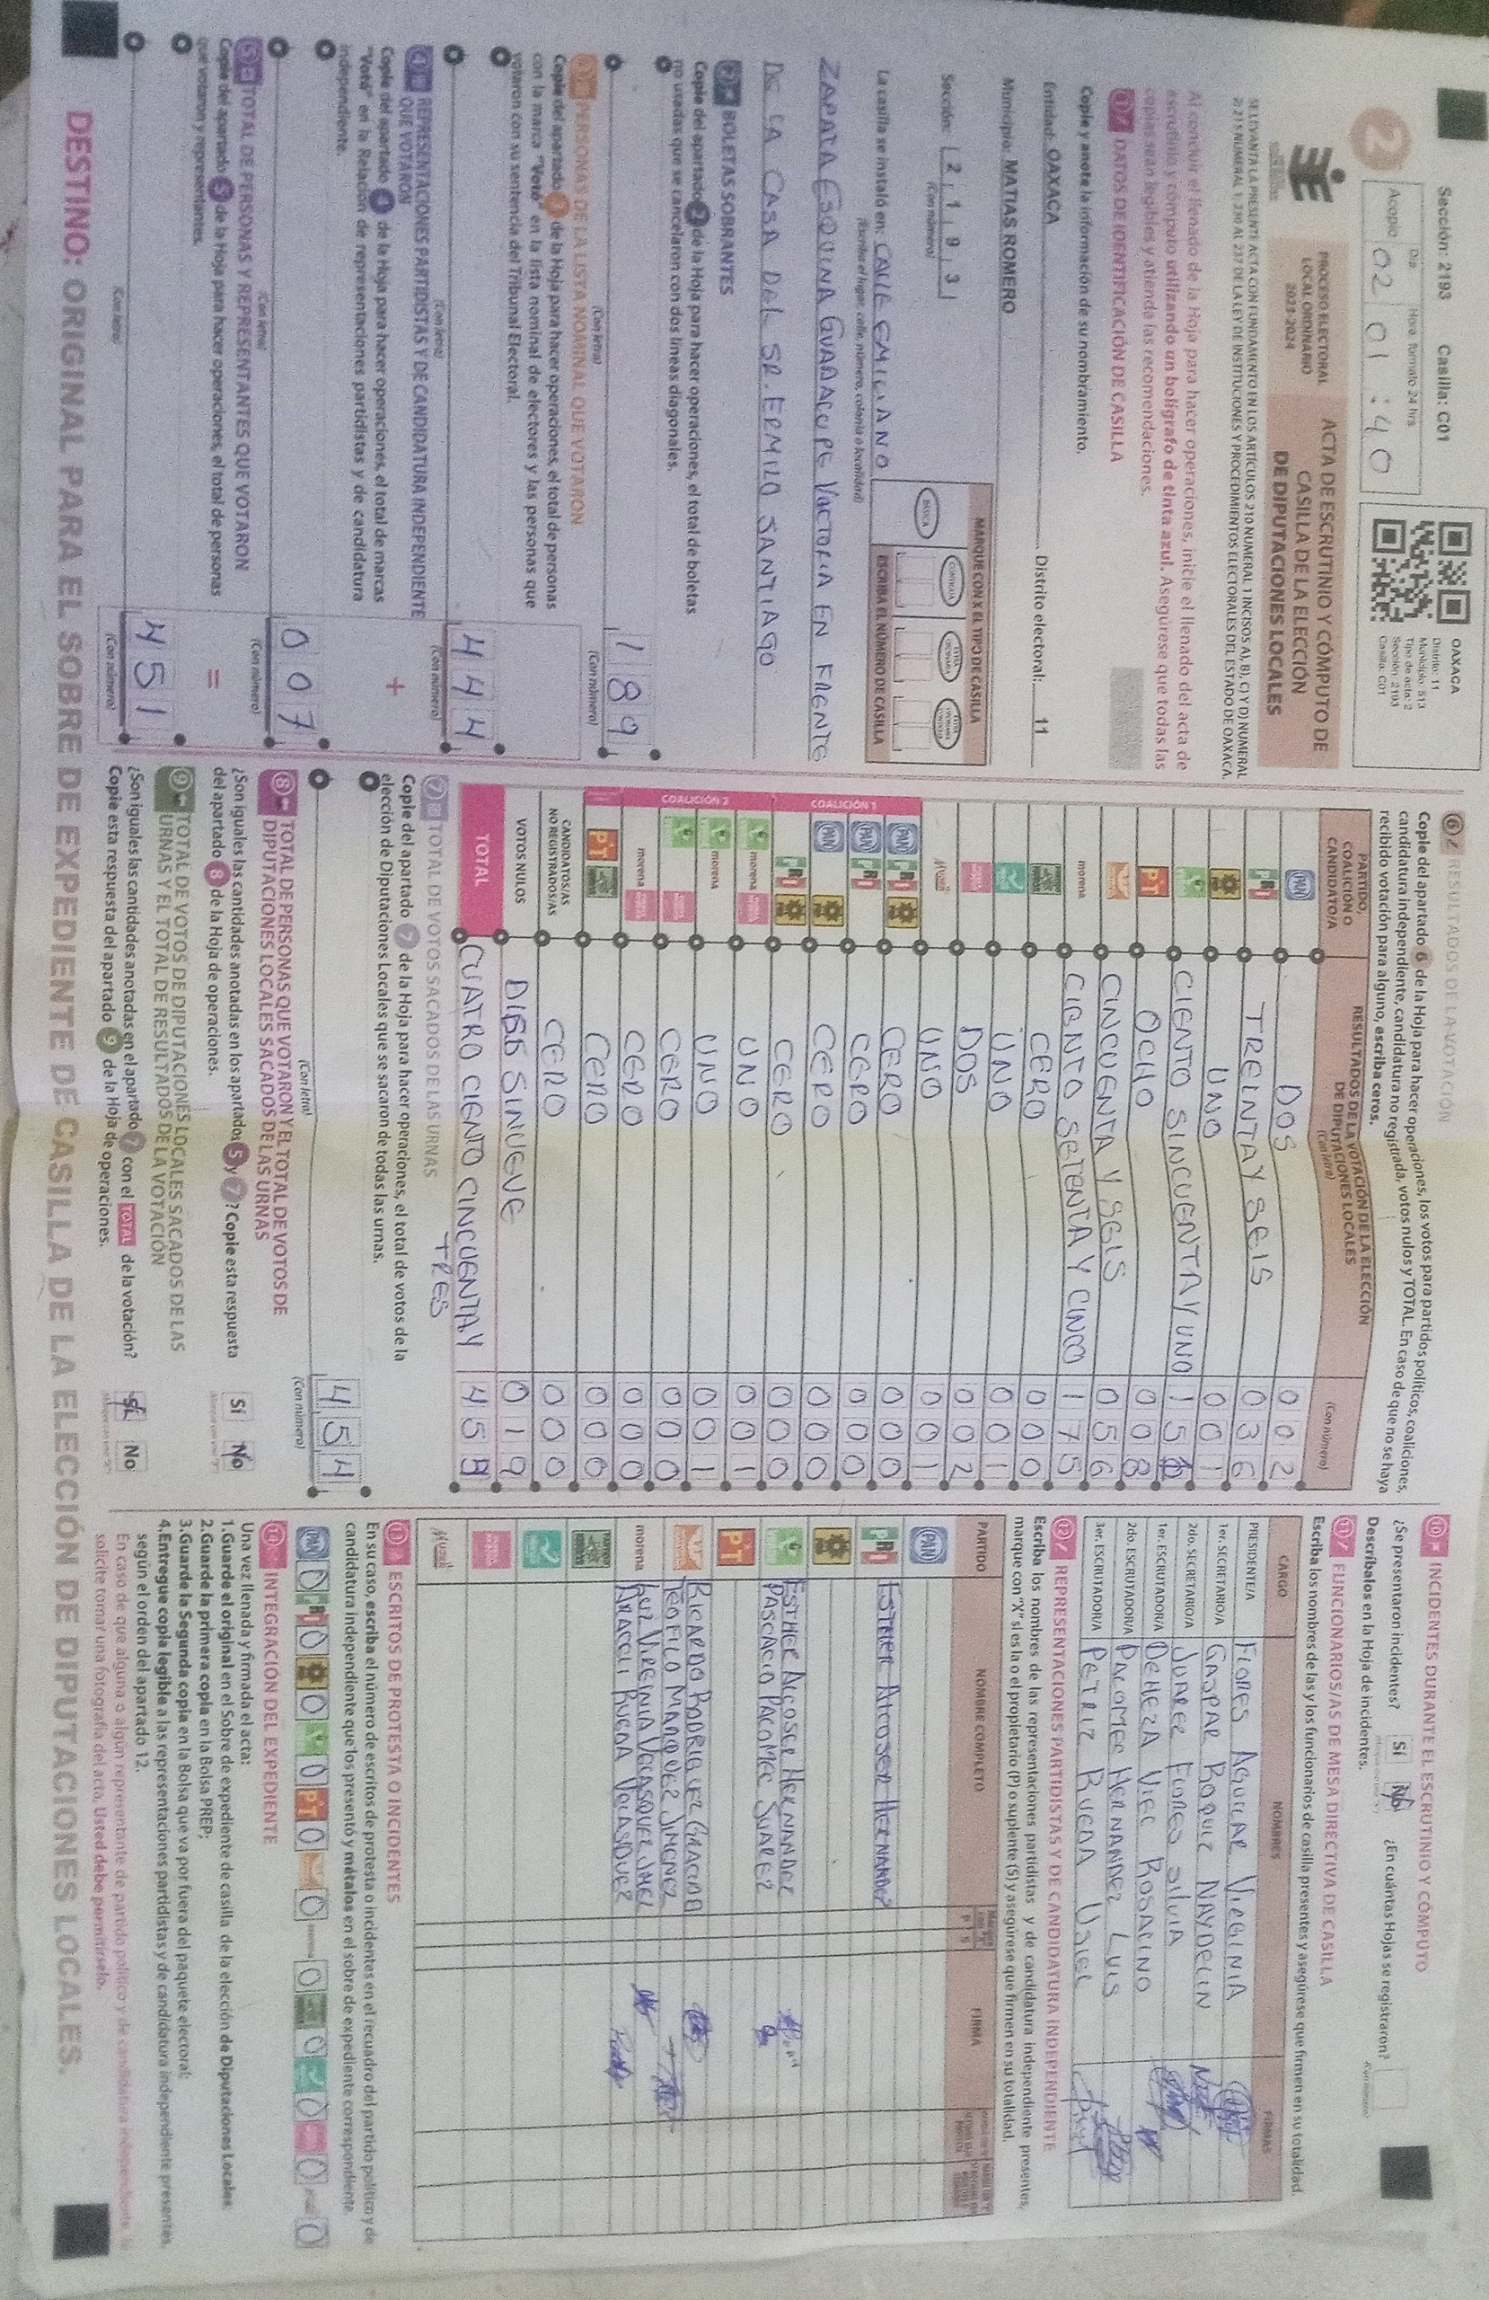 Sección: 2193 Casilla: C01
Día Hora formato 24 hrs
Acopio 02 01:40
2
OAXACA
Distrito: 11
Municipio: 513
Tipo de acta: 2
Sección: 2193
Casilla: C01
PROCESO ELECTORAL
LOCAL ORDINARIO
2023-2024
ACTA DE ESCRUTINIO Y CÓMPUTO DE
CASILLA DE LA ELECCIÓN
DE DIPUTACIONES LOCALES
SE LEVANTA LA PRESENTE ACTA CON FUNDAMENTO EN LOS ARTÍCULOS 210 NUMERAL 1 INCISOS A), B), C) Y D) NUMERAL
2; 215 NUMERAL 1; 230 AL 237 DE LA LEY DE INSTITUCIONES Y PROCEDIMIENTOS ELECTORALES DEL ESTADO DE OAXACA.
Al concluir el llenado de la Hoja para hacer operaciones, inicie el llenado del acta de
escrutinio y cómputo utilizando un bolígrafo de tinta azul. Asegúrese que todas las
copias sean legibles y atienda las recomendaciones.
1 DATOS DE IDENTIFICACIÓN DE CASILLA
Copie y anote la información de su nombramiento.
Entidad: OAXACA Distrito electoral: 11
Municipio: MATIAS ROMERO
Sección: 2 1 9 3
(Con número)
MARQUE CON X EL TIPO DE CASILLA
BÁSICA
ESCRIBA EL NÚMERO DE CASILLA
La casilla se instaló en: CALLE EMILIANO
(Escriba el lugar, calle, número, colonia o localidad)
ZAPATA ESQUINA GUADALUPE VICTORIA EN FRENTE
DE LA CASA DEL SR. ERMILO SANTIAGO
2 BOLETAS SOBRANTES
Copie del apartado 2 de la Hoja para hacer operaciones, el total de boletas
no usadas que se cancelaron con dos líneas diagonales.
189
(Con letra) (Con número)
3 PERSONAS DE LA LISTA NOMINAL QUE VOTARON
Copie del apartado 3 de la Hoja para hacer operaciones, el total de personas
con la marca "Votó" en la lista nominal de electores y las personas que
votaron con su sentencia del Tribunal Electoral.
444
(Con letra) (Con número)
4 REPRESENTACIONES PARTIDISTAS Y DE CANDIDATURA INDEPENDIENTE
QUE VOTARON
+
Copie del apartado 4 de la Hoja para hacer operaciones, el total de marcas
"Votó" en la Relación de representaciones partidistas y de candidatura
independiente.
007
(Con letra) (Con número)
5 TOTAL DE PERSONAS Y REPRESENTANTES QUE VOTARON
=
Copie del apartado 5 de la Hoja para hacer operaciones, el total de personas
que votaron y representantes.
451
(Con letra) (Con número)
6 RESULTADOS DE LA VOTACIÓN
Copie del apartado 6 de la Hoja para hacer operaciones, los votos para partidos políticos, coaliciones,
candidatura independiente, candidatura no registrada, votos nulos y TOTAL. En caso de que no se haya
recibido votación para alguno, escriba ceros.
PARTIDO,
COALICIÓN O
CANDIDATO/A
RESULTADOS DE LA VOTACIÓN DE LA ELECCIÓN
DE DIPUTACIONES LOCALES
(Con letra) (Con número)
PAN DOS 002
PRI TREINTA Y SEIS 036
UNO 001
CIENTO SINCUENTA Y UNO 15
PT OCHO 008
CINCUENTA Y SEIS 056
morena CIENTO SETENTA Y CINCO 175
CERO 000
UNO 001
DOS 002
UNO 001
COALICIÓN 1
PAN PRI CERO 000
PAN PRI CERO 000
PAN CERO 000
PRI CERO 000
COALICIÓN 2
morena UNO 001
morena UNO 001
CERO 000
morena CERO 000
PT CERO 000
CANDIDATOS/AS
NO REGISTRADOS/AS CERO 000
VOTOS NULOS DIES SINUEVE 019
TOTAL CUATRO CIENTO CINCUENTA Y 45
TRES
7 TOTAL DE VOTOS SACADOS DE LAS URNAS
Copie del apartado 7 de la Hoja para hacer operaciones, el total de votos de la
elección de Diputaciones Locales que se sacaron de todas las urnas.
454
(Con letra) (Con número)
8 TOTAL DE PERSONAS QUE VOTARON Y EL TOTAL DE VOTOS DE
DIPUTACIONES LOCALES SACADOS DE LAS URNAS
¿Son iguales las cantidades anotadas en los apartados 5 y 7? Copie esta respuesta
del apartado 8 de la Hoja de operaciones.
Sí No
9 TOTAL DE VOTOS DE DIPUTACIONES LOCALES SACADOS DE LAS
URNAS Y EL TOTAL DE RESULTADOS DE LA VOTACIÓN
¿Son iguales las cantidades anotadas en el apartado 7 con el TOTAL de la votación?
Copie esta respuesta del apartado 9 de la Hoja de operaciones.
Sí No
10 INCIDENTES DURANTE EL ESCRUTINIO Y CÓMPUTO
¿Se presentaron incidentes? Sí No ¿En cuántas Hojas se registraron?
Descríbalos en la Hoja de incidentes.
11 FUNCIONARIOS/AS DE MESA DIRECTIVA DE CASILLA
Escriba los nombres de las y los funcionarios de casilla presentes y asegúrese que firmen en su totalidad.
CARGO NOMBRES FIRMAS
PRESIDENTE/A FLORES AGUILAR VIRGINIA
1er. SECRETARIO/A GASPAR ROQUE NAYDELIN
2do. SECRETARIO/A JUAREZ FLORES SILVIA
1er. ESCRUTADOR/A DEHEZA VILL ROSALINO
2do. ESCRUTADOR/A PALOMEC HERNANDEZ LUIS
3er. ESCRUTADOR/A PETRIZ RUEDA USIEL
12 REPRESENTACIONES PARTIDISTAS Y DE CANDIDATURA INDEPENDIENTE
Escriba los nombres de las representaciones partidistas y de candidatura independiente presentes,
marque con "X" si es la o el propietario (P) o suplente (S) y asegúrese que firmen en su totalidad.
PARTIDO NOMBRE COMPLETO P S FIRMA
PAN
PRI ESTHER ALCOSER HERNANDEZ
ESTHER ALCOSER HERNANDEZ
PASCACIO PALOMEC SUAREZ
PT
RICARDO RODRIGUEZ GRACIDA
TEOFILO MARQUEZ JIMENEZ
morena LUZ VIRGINIA VELASQUEZ JMEZ
ARACELI RUEDA VELASQUEZ
13 ESCRITOS DE PROTESTA O INCIDENTES
En su caso, escriba el número de escritos de protesta o incidentes en el recuadro del partido político y de
candidatura independiente que los presentó y métalos en el sobre de expediente correspondiente.
PAN 0 PRI 0 0 0 PT 0 0 morena 0 0 0 0 0
14 INTEGRACIÓN DEL EXPEDIENTE
Una vez llenada y firmada el acta:
1.Guarde el original en el Sobre de expediente de casilla de la elección de Diputaciones Locales.
2.Guarde la primera copia en la Bolsa PREP;
3.Guarde la Segunda copia en la Bolsa que va por fuera del paquete electoral;
4.Entregue copia legible a las representaciones partidistas y de candidatura independiente presentes,
según el orden del apartado 12.
En caso de que alguna o algún representante de partido político y de candidatura independiente lo
solicite tomar una fotografía del acta, Usted debe permitírselo.
DESTINO: ORIGINAL PARA EL SOBRE DE EXPEDIENTE DE CASILLA DE LA ELECCIÓN DE DIPUTACIONES LOCALES.